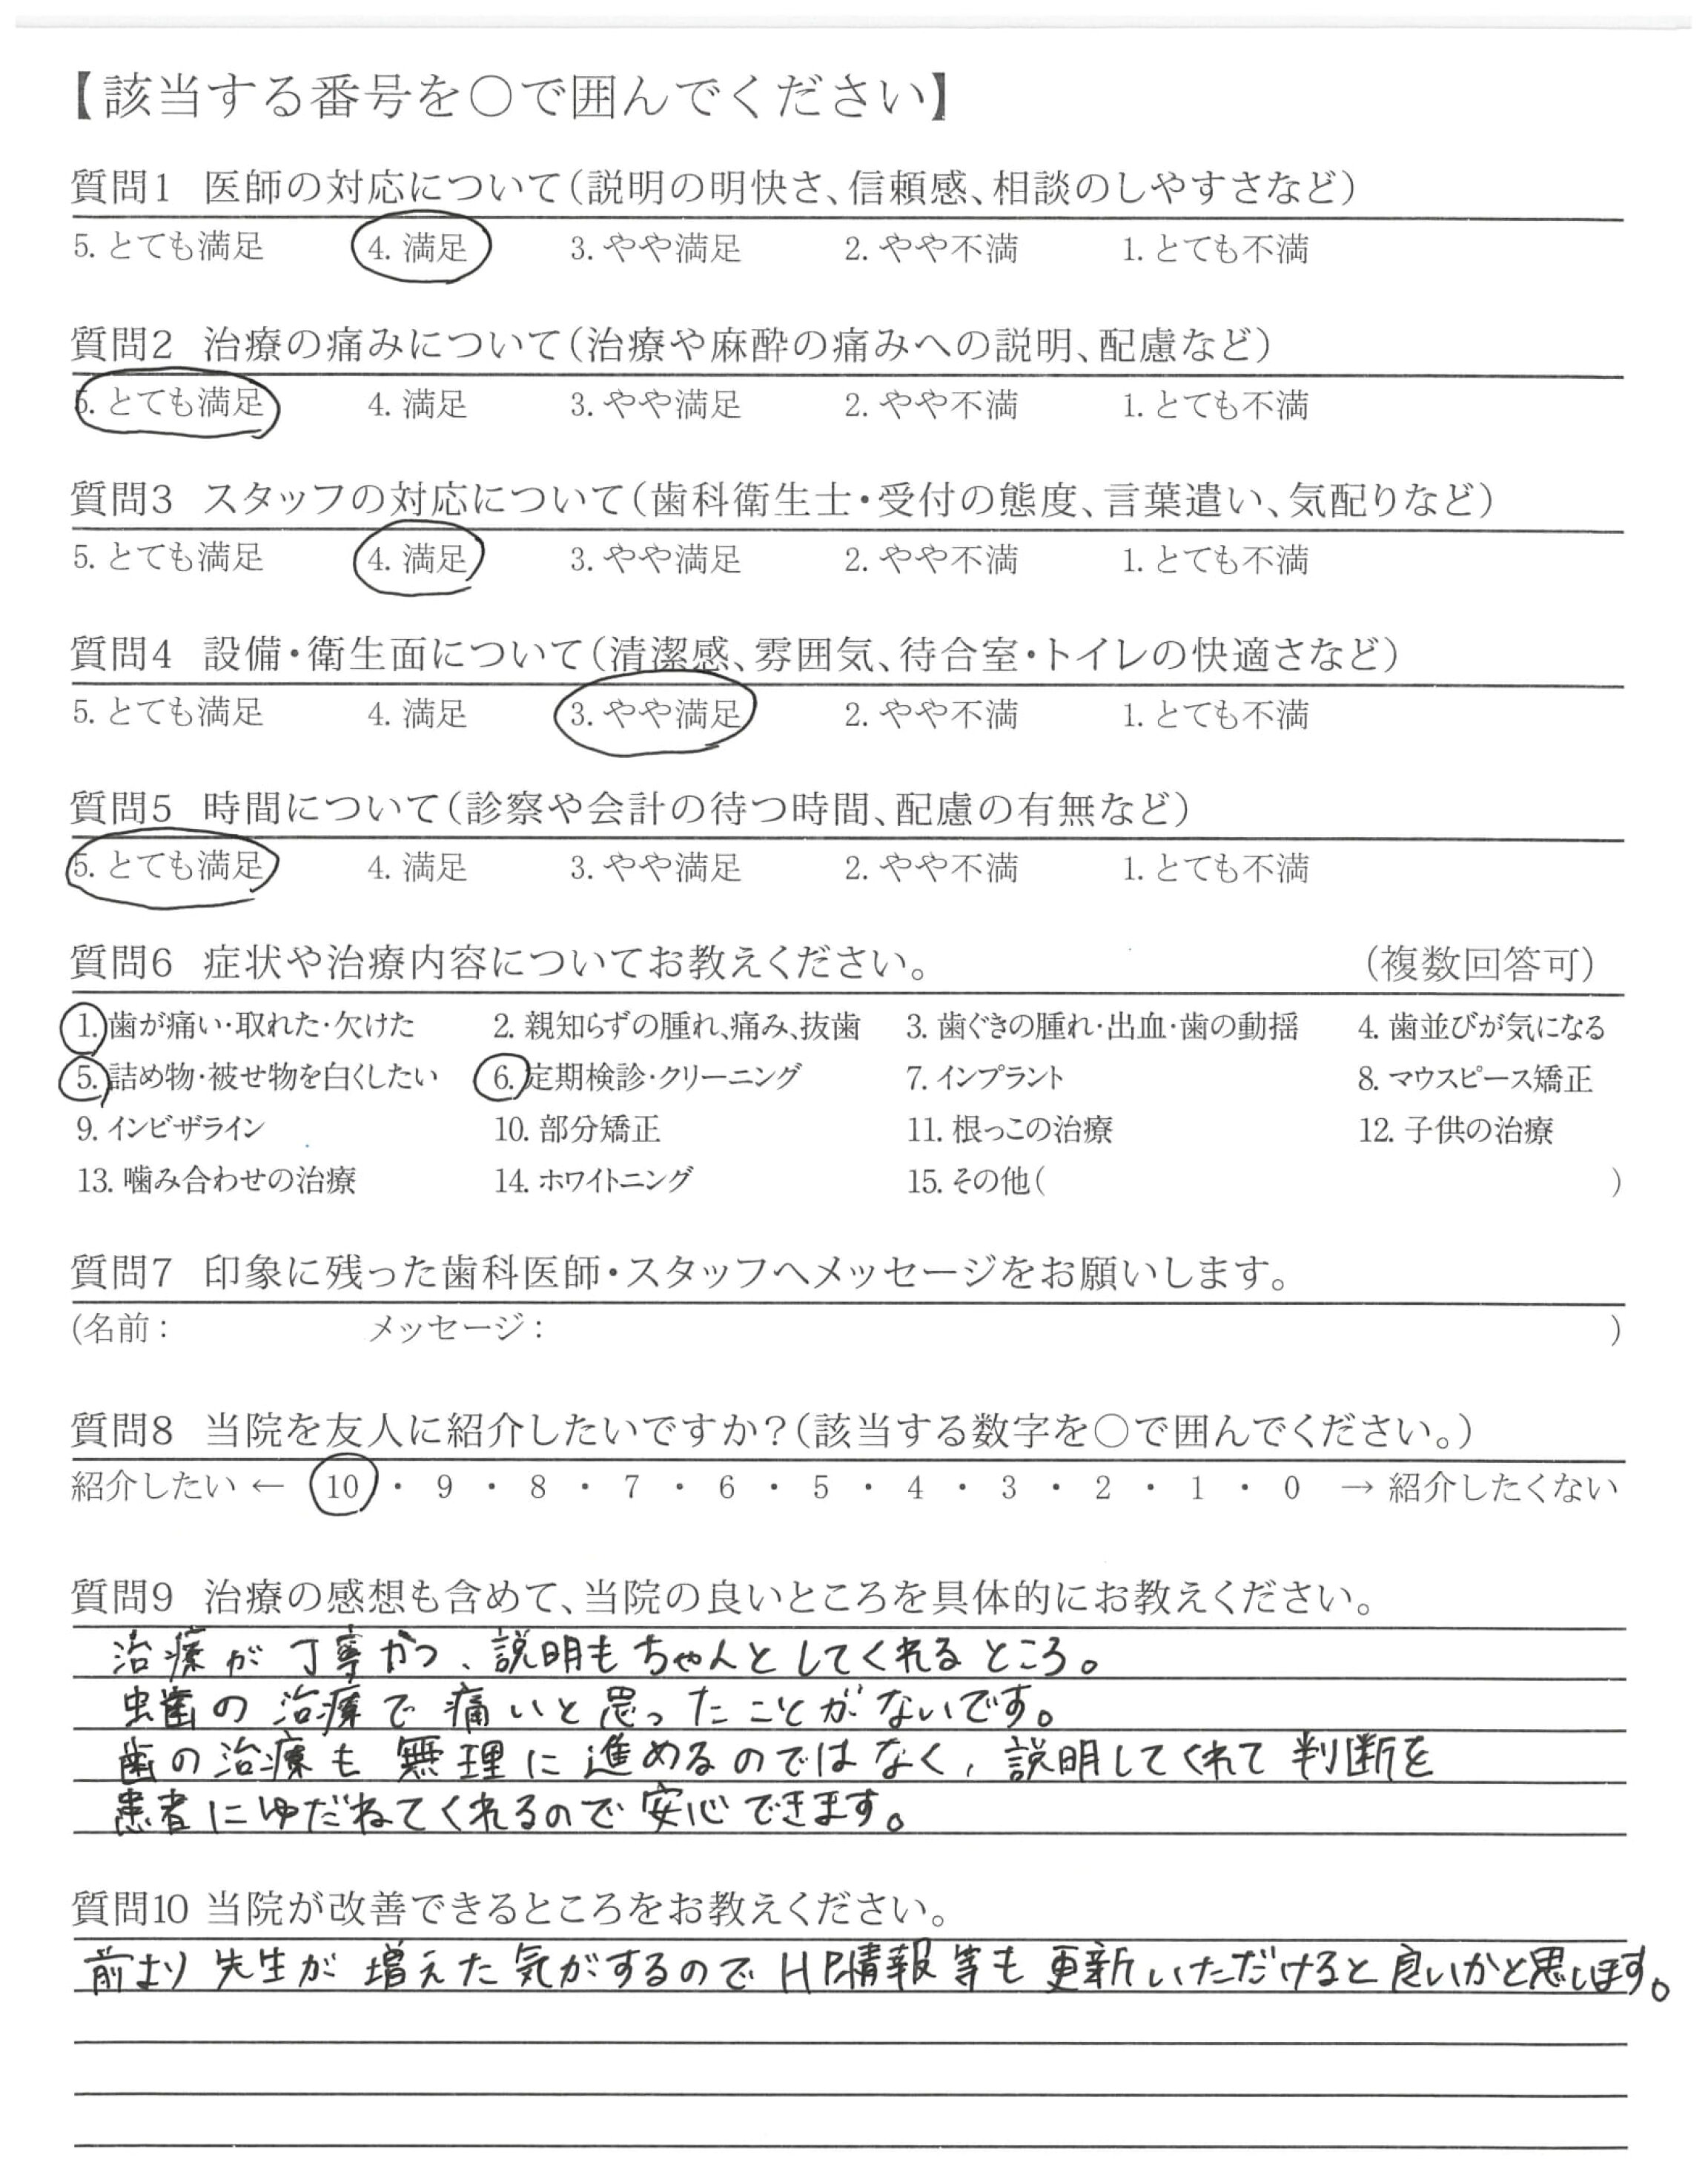 【該当する番号を○で囲んでください】
質問1 医師の対応について(説明の明快さ、信頼感、相談のしやすさなど)
5. とても満足 4. 満足 3. やや満足 2. やや不満 1. とても不満
質問2 治療の痛みについて(治療や麻酔の痛みへの説明、配慮など)
5. とても満足 4. 満足 3. やや満足 2. やや不満 1. とても不満
質問3 スタッフの対応について(歯科衛生士・受付の態度、言葉遣い、気配りなど)
5. とても満足 4. 満足 3. やや満足 2. やや不満 1. とても不満
質問4 設備・衛生面について(清潔感、雰囲気、待合室・トイレの快適さなど)
5. とても満足 4. 満足 3. やや満足 2. やや不満 1. とても不満
質問5 時間について(診察や会計の待つ時間、配慮の有無など)
5. とても満足 4. 満足 3. やや満足 2. やや不満 1. とても不満
質問6 症状や治療内容についてお教えください。 (複数回答可)
1. 歯が痛い・取れた・欠けた 2. 親知らずの腫れ、痛み、抜歯 3. 歯ぐきの腫れ・出血・歯の動揺 4. 歯並びが気になる
5. 詰め物・被せ物を白くしたい 6. 定期検診・クリーニング 7. インプラント 8. マウスピース矯正
9. インビザライン 10. 部分矯正 11. 根っこの治療 12. 子供の治療
13. 噛み合わせの治療 14. ホワイトニング 15. その他( )
質問7 印象に残った歯科医師・スタッフへメッセージをお願いします。
(名前: メッセージ: )
質問8 当院を友人に紹介したいですか?(該当する数字を○で囲んでください。)
紹介したい ← 10 ・ 9 ・ 8 ・ 7 ・ 6 ・ 5 ・ 4 ・ 3 ・ 2 ・ 1 ・ 0 → 紹介したくない
質問9 治療の感想も含めて、当院の良いところを具体的にお教えください。
治療が丁寧かつ、説明もちゃんとしてくれるところ。
虫歯の治療で痛いと思ったことがないです。
歯の治療も無理に進めるのではなく、説明してくれて判断を
患者にゆだねてくれるので安心できます。
質問10 当院が改善できるところをお教えください。
前より先生が増えた気がするのでHP情報等も更新いただけると良いかと思います。